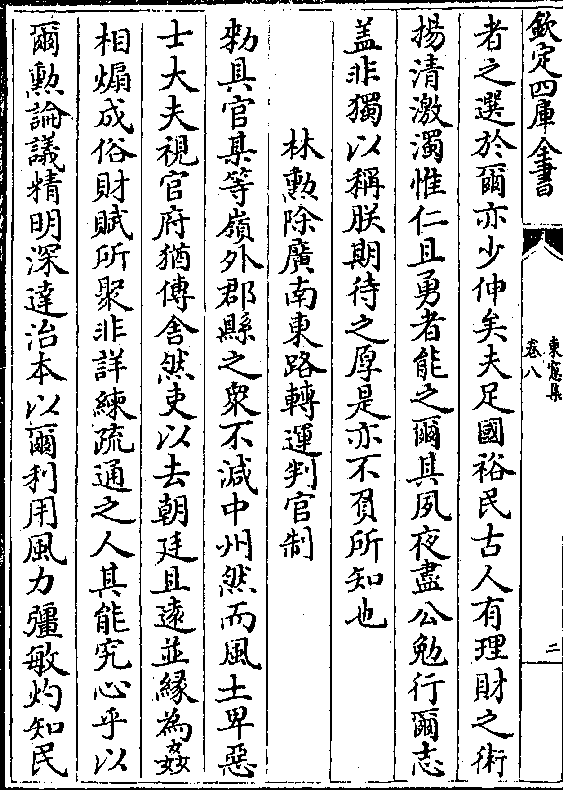 欽定四庫全書
東窓集
卷八
二
者之選於爾亦少仲矣夫足國裕民古人有理財之術
揚清激濁惟仁且勇者能之爾其夙夜盡公勉行爾志
盖非獨以稱朕期待之厚是亦不負所知也
林勲除廣南東路轉運判官制
勅具官某等嶺外郡縣之衆不減中州然而風土卑惡
士大夫視官府猶傳舍然吏以去朝廷且遠並縁為姦
相煽成俗財賦所聚非詳練疏通之人其能究心乎以
爾勲論議精明深達治本以爾利用風力彊敏灼知民